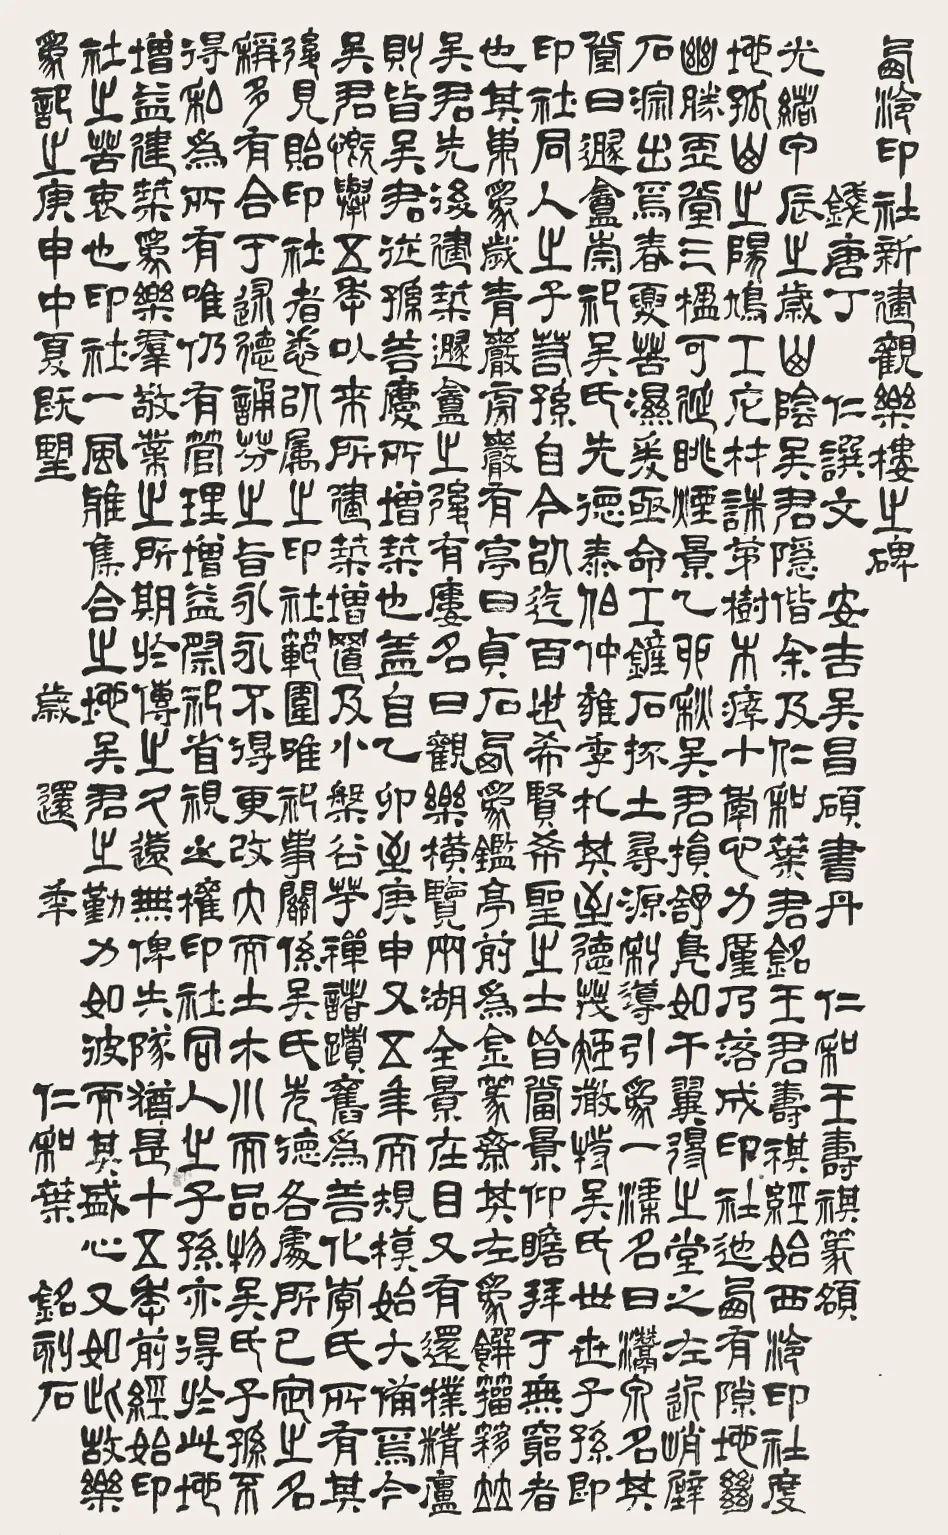 西泠印社新建觀樂樓之碑
錢唐丁 仁譔文 安吉吳昌碩書丹 仁和王壽祺篆額
光緒甲辰之歲山陰吳君隱偕余及仁和葉君銘王君壽祺經始西泠印社度
地孤山之陽鳩工庀材誅茅樹木瘁十年心力廑乃落成印社迤西有隙地
幽勝亞堂三楹可延眺煙景乙卯秋吳君損舒鳧如干翼得之堂之左近峭壁
石出焉春夏苦濕爰亟命工鏟石抔土尋源利導引為一名曰濳泉名其
堂曰遯盦崇祀吳氏先德泰伯仲雍季札其至德茂矩微特吳氏世世子孫即
印社同人之子若孫自今以迄百世希賢希聖之士皆當景仰瞻拜于無窮者
也其東為歲青巖旁巖有亭曰貞石西為鑑亭前為金篆齋其左為饌籀簃竝
吳君先後建築遯盦之後有廔名曰觀樂橫覽兩湖全景在目又有還樸精廬
則皆吳君從孫善慶所增築也盖自乙卯至庚申又五年而規模始大備焉今
吳君慨舉五年以來所建築增置及小盤谷芋禪諸蹟舊為善化李氏所有其
後見貽印社者悉以屬之印社範圍唯祀事關係吳氏先德各處所已定之名
稱多有合于述德誦芬之旨永永不得更改大而土木小而品物吳氏子孫不
得私為所有唯仍有管理增益祭祀省視之權印社同人之子孫亦得於此地
增益建築為樂羣敬業之所期於傳之久遠無俾失隊猶是十五年前經始印
社之苦衷也印社一風雅集合之地吳君之勤力如彼而其盛心又如此故樂
為記之庚申中夏既朢 歲 還 年 仁和葉 銘刻石